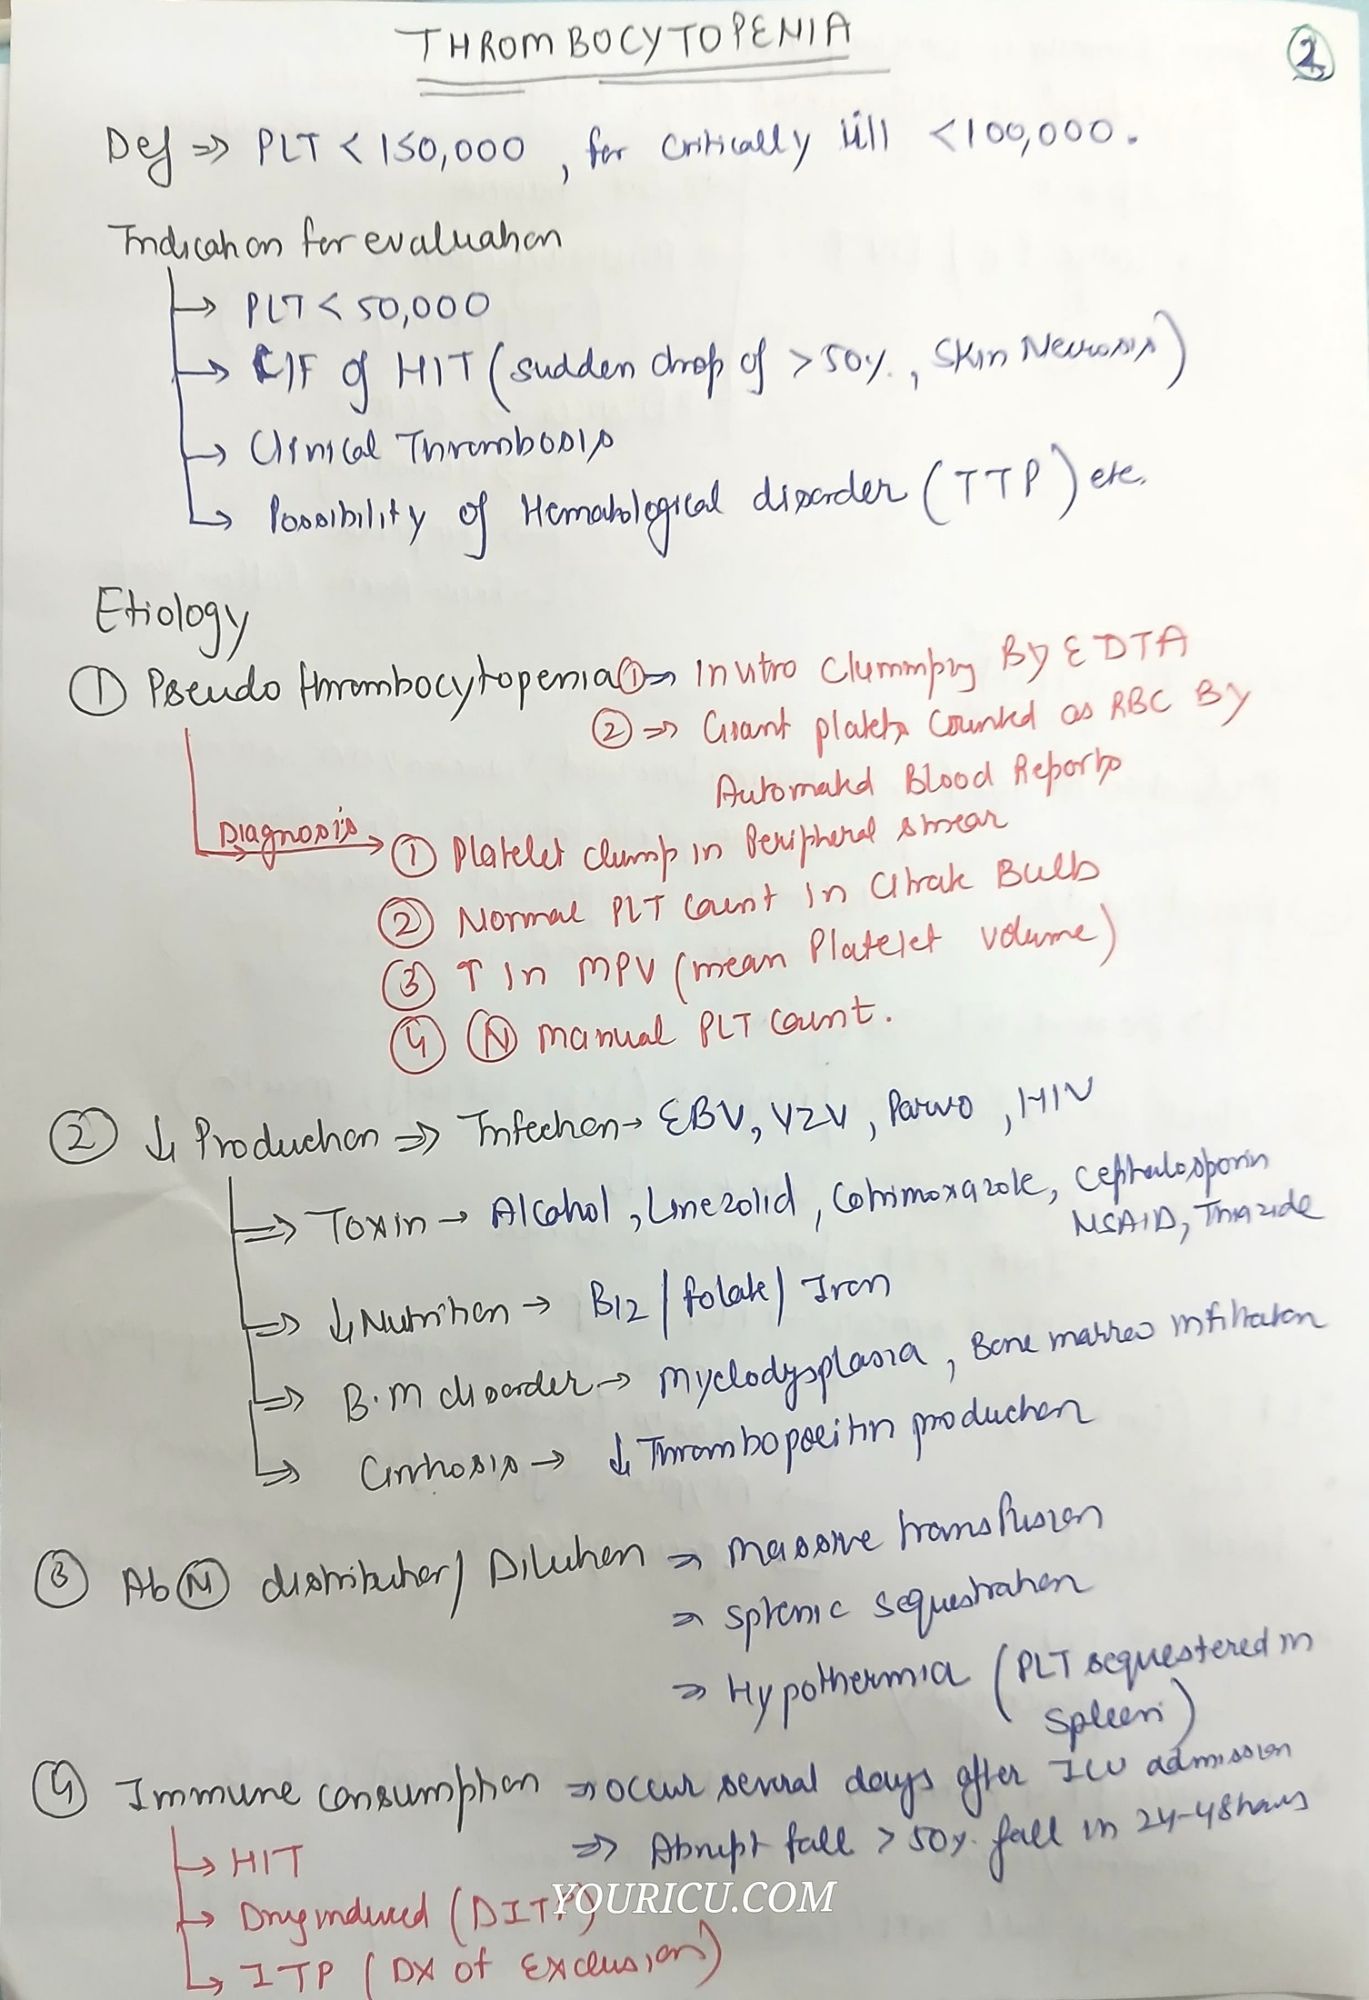 THROMBOCYTOPENIA
2
Def ⇒ PLT < 150,000 , for critically ill < 100,000.
Indication for evaluation
→ PLT < 50,000
→ C/F of HIT (sudden drop of > 50%, Skin Necrosis)
→ Clinical Thrombosis
→ Possibility of Hematological disorder (TTP) etc.
Etiology
① Pseudo thrombocytopenia ① ⇒ Invitro Clummping By EDTA
② ⇒ Giant platelets Counted as RBC By
Automated Blood Reports
Diagnosis → ① Platelet clump in Peripheral smear
② Normal PLT Count in Citrate Bulb
③ ↑ in MPV (mean Platelet volume)
④ Ⓝ manual PLT count.
② ↓ Production ⇒ Infection → EBV, VZV, Parvo, HIV
⇒ Toxin → Alcohol, Linezolid, Cotrimoxazole, Cephalosporin
NSAID, Thiazide
⇒ ↓ Nutrition → B12 / folate / Iron
⇒ B.M disorder → Myelodysplasia, Bone marrow infiltration
⇒ Cirrhosis → ↓ Thrombopoeitin production
③ Ab Ⓝ distribution / Dilution ⇒ Massive transfusion
⇒ Splenic sequestration
⇒ Hypothermia (PLT sequestered in
Spleen)
④ Immune consumption ⇒ occur several days after ICU admission
⇒ Abrupt fall > 50% fall in 24-48 hours
→ HIT
→ Drug induced (DITP)
YOURICU.COM
→ ITP (DX of Exclusion)